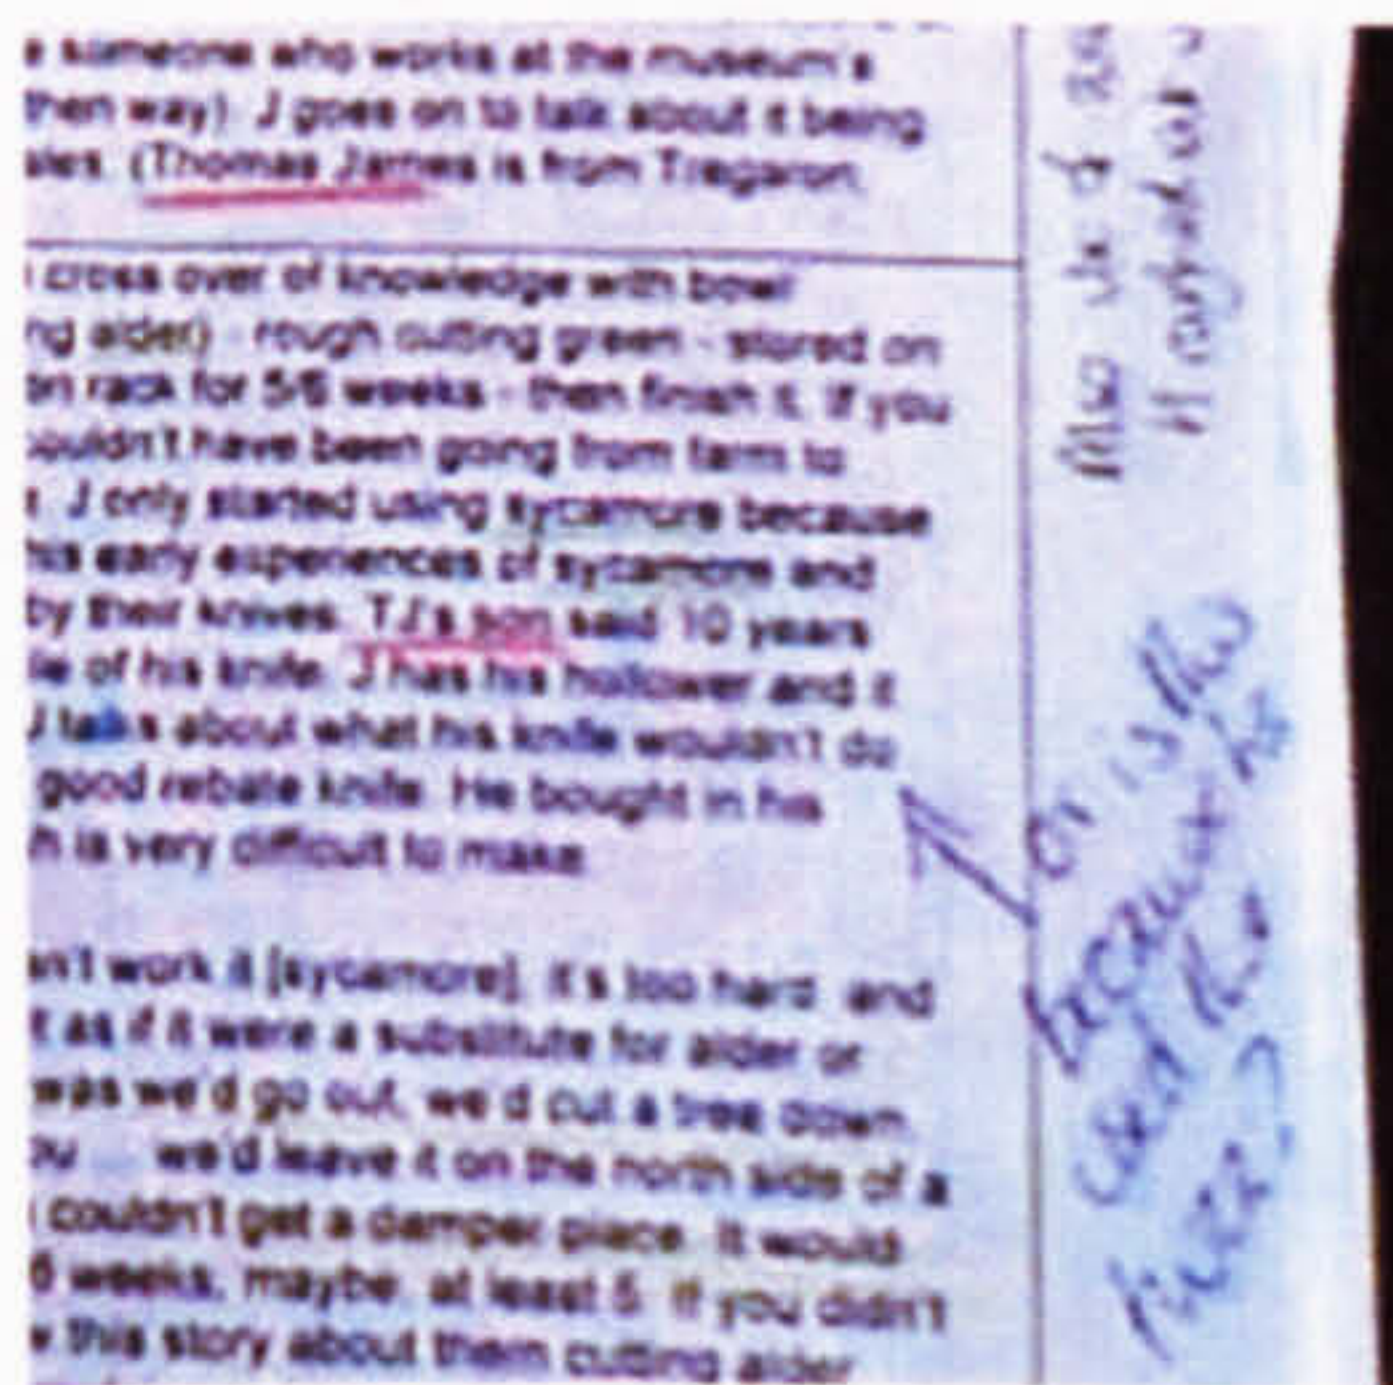 someone who works at the museum's
then way) J goes on to talk about it being
ales. (Thomas James is from Tregaron,
cross over of knowledge with bowl
ng alder) - rough cutting green - stored on
on rack for 5/6 weeks - then finish it. If you
couldn't have been going from farm to
J only started using sycamore because
his early experiences of sycamore and
by their knives. TJ's son said 10 years
le of his knife. J has his hollower and it
J talks about what his knife wouldn't do
good rebate knife. He bought in his
h is very difficult to make
an't work it [sycamore], it's too hard and
t as if it were a substitute for alder or
was we'd go out, we'd cut a tree down
ou ... we'd leave it on the north side of a
couldn't get a damper place. It would
6 weeks, maybe, at least 5. If you didn't
this story about them cutting alder
use of
or is this
because he
used